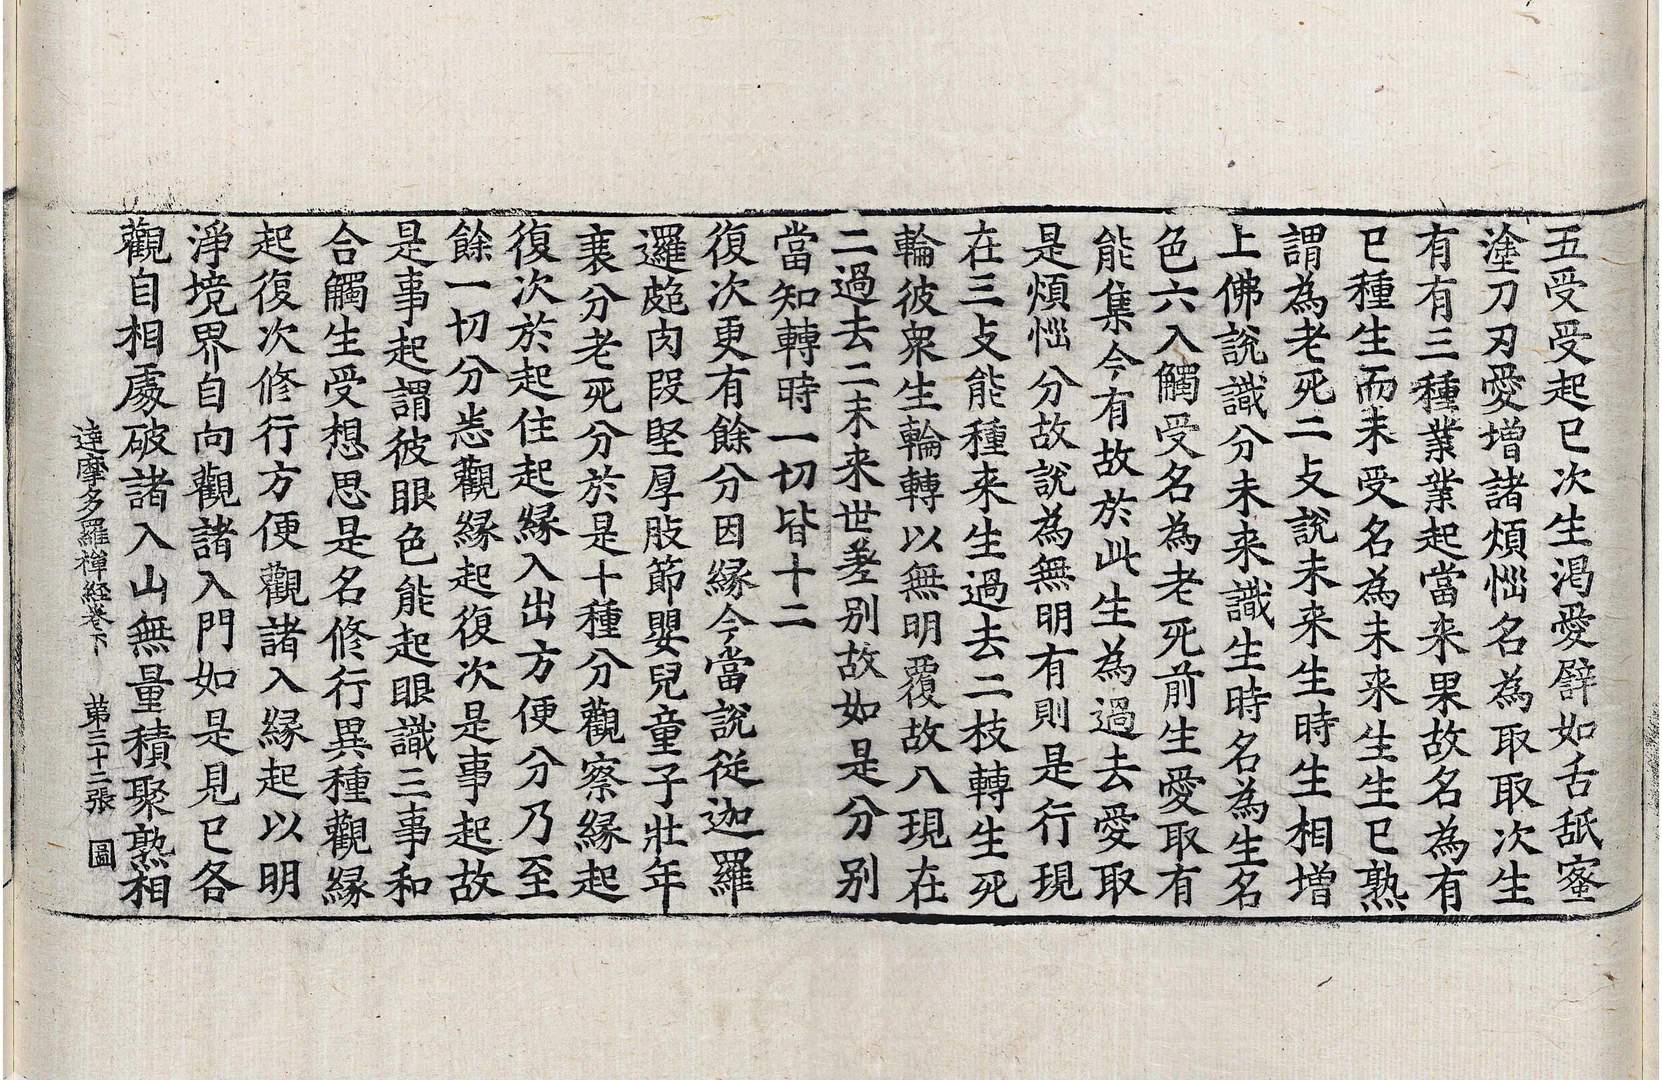 五受受起已次生渴愛譬如舌舐蜜
塗刀刃愛增諸煩惱名為取取次生
有有三種業業起當来果故名為有
已種生而未受名為未来生生已熟
謂為老死二支說未来生時生相增
上佛說識分未来識生時名為生名
色六入觸受名為老死前生愛取有
能集今有故於此生為過去愛取
是煩惱分故說為無明有則是行現
在三支能種来生過去二枝轉生死
輪彼衆生輪轉以無明覆故八現在
二過去二未来世差別故如是分別
當知轉時一切皆十二
復次更有餘分因縁今當說従迦羅
邏皰肉段堅厚肢節嬰兒童子壯年
衰分老死分於是十種分觀察縁起
復次於起住起縁入出方便分乃至
餘一切分悉觀縁起復次是事起故
是事起謂彼眼色能起眼識三事和
合觸生受想思是名修行異種觀縁
起復次修行方便觀諸入縁起以明
淨境界自向觀諸入門如是見已各
觀自相處破諸入山無量積聚熟相
達摩多羅禪経卷下　第三十二張　圖